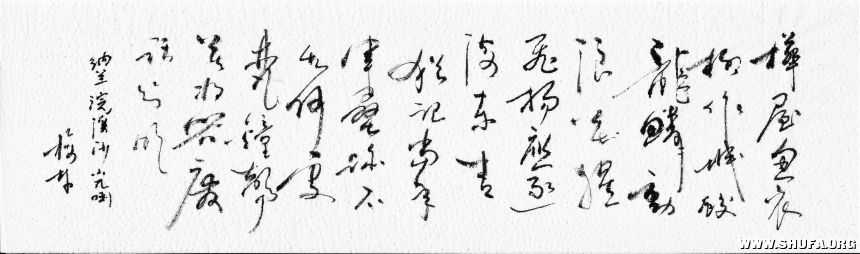 樺屋魚衣
柳作城蛟
龍鱗動
浪花腥
飛揚應逐
海東青
猶記當年
軍壘跡不
知何處
梵鐘聲
莫將興廢
話分明
納兰浣溪沙小兀喇
WWW.SHUFA.ORG